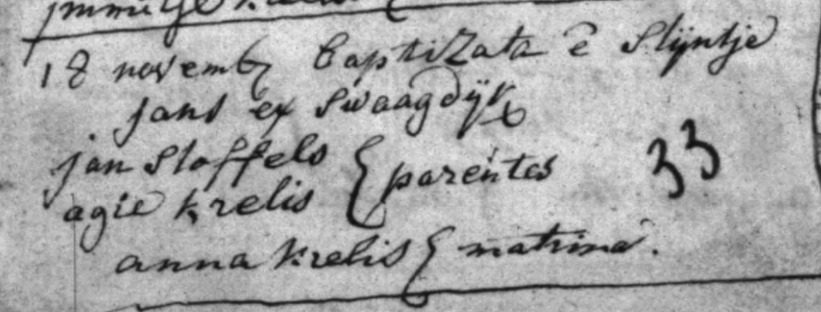 18 novemb baptizata ē Slijntje
jans ex Swaagdijk
jan Stoffels
agie krelis } parentes 33
anna krelis } matrina.